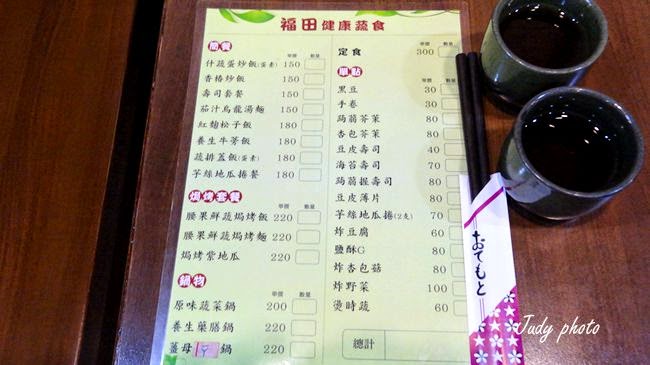 福田健康蔬食
簡餐 單價 數量
什蔬蛋炒飯(蛋素) 150
香椿炒飯 150
壽司套餐 150
茄汁烏龍湯麵 180
紅麴松子飯 180
養生牛蒡飯 180
蔬排蓋飯(蛋素) 180
芓絲地瓜捲餐 180
焗烤套餐 單價 數量
腰果鮮蔬焗烤飯 220
腰果鮮蔬焗烤麵 220
焗烤紫地瓜 220
鍋物 單價 數量
原味蔬菜鍋 200
養生藥膳鍋 220
薑母鍋 220
單價 數量
定食 300
單點
黑豆 30
手卷 30
蒟蒻芥茉 80
杏包芥茉 80
豆皮壽司 40
海苔壽司 70
蒟蒻握壽司 80
豆皮薄片 80
芓絲地瓜捲(2支) 70
炸豆腐 60
鹽酥G 80
炸杏包菇 80
炸野菜 100
燙時蔬 60
總計
おてもと
Judy photo